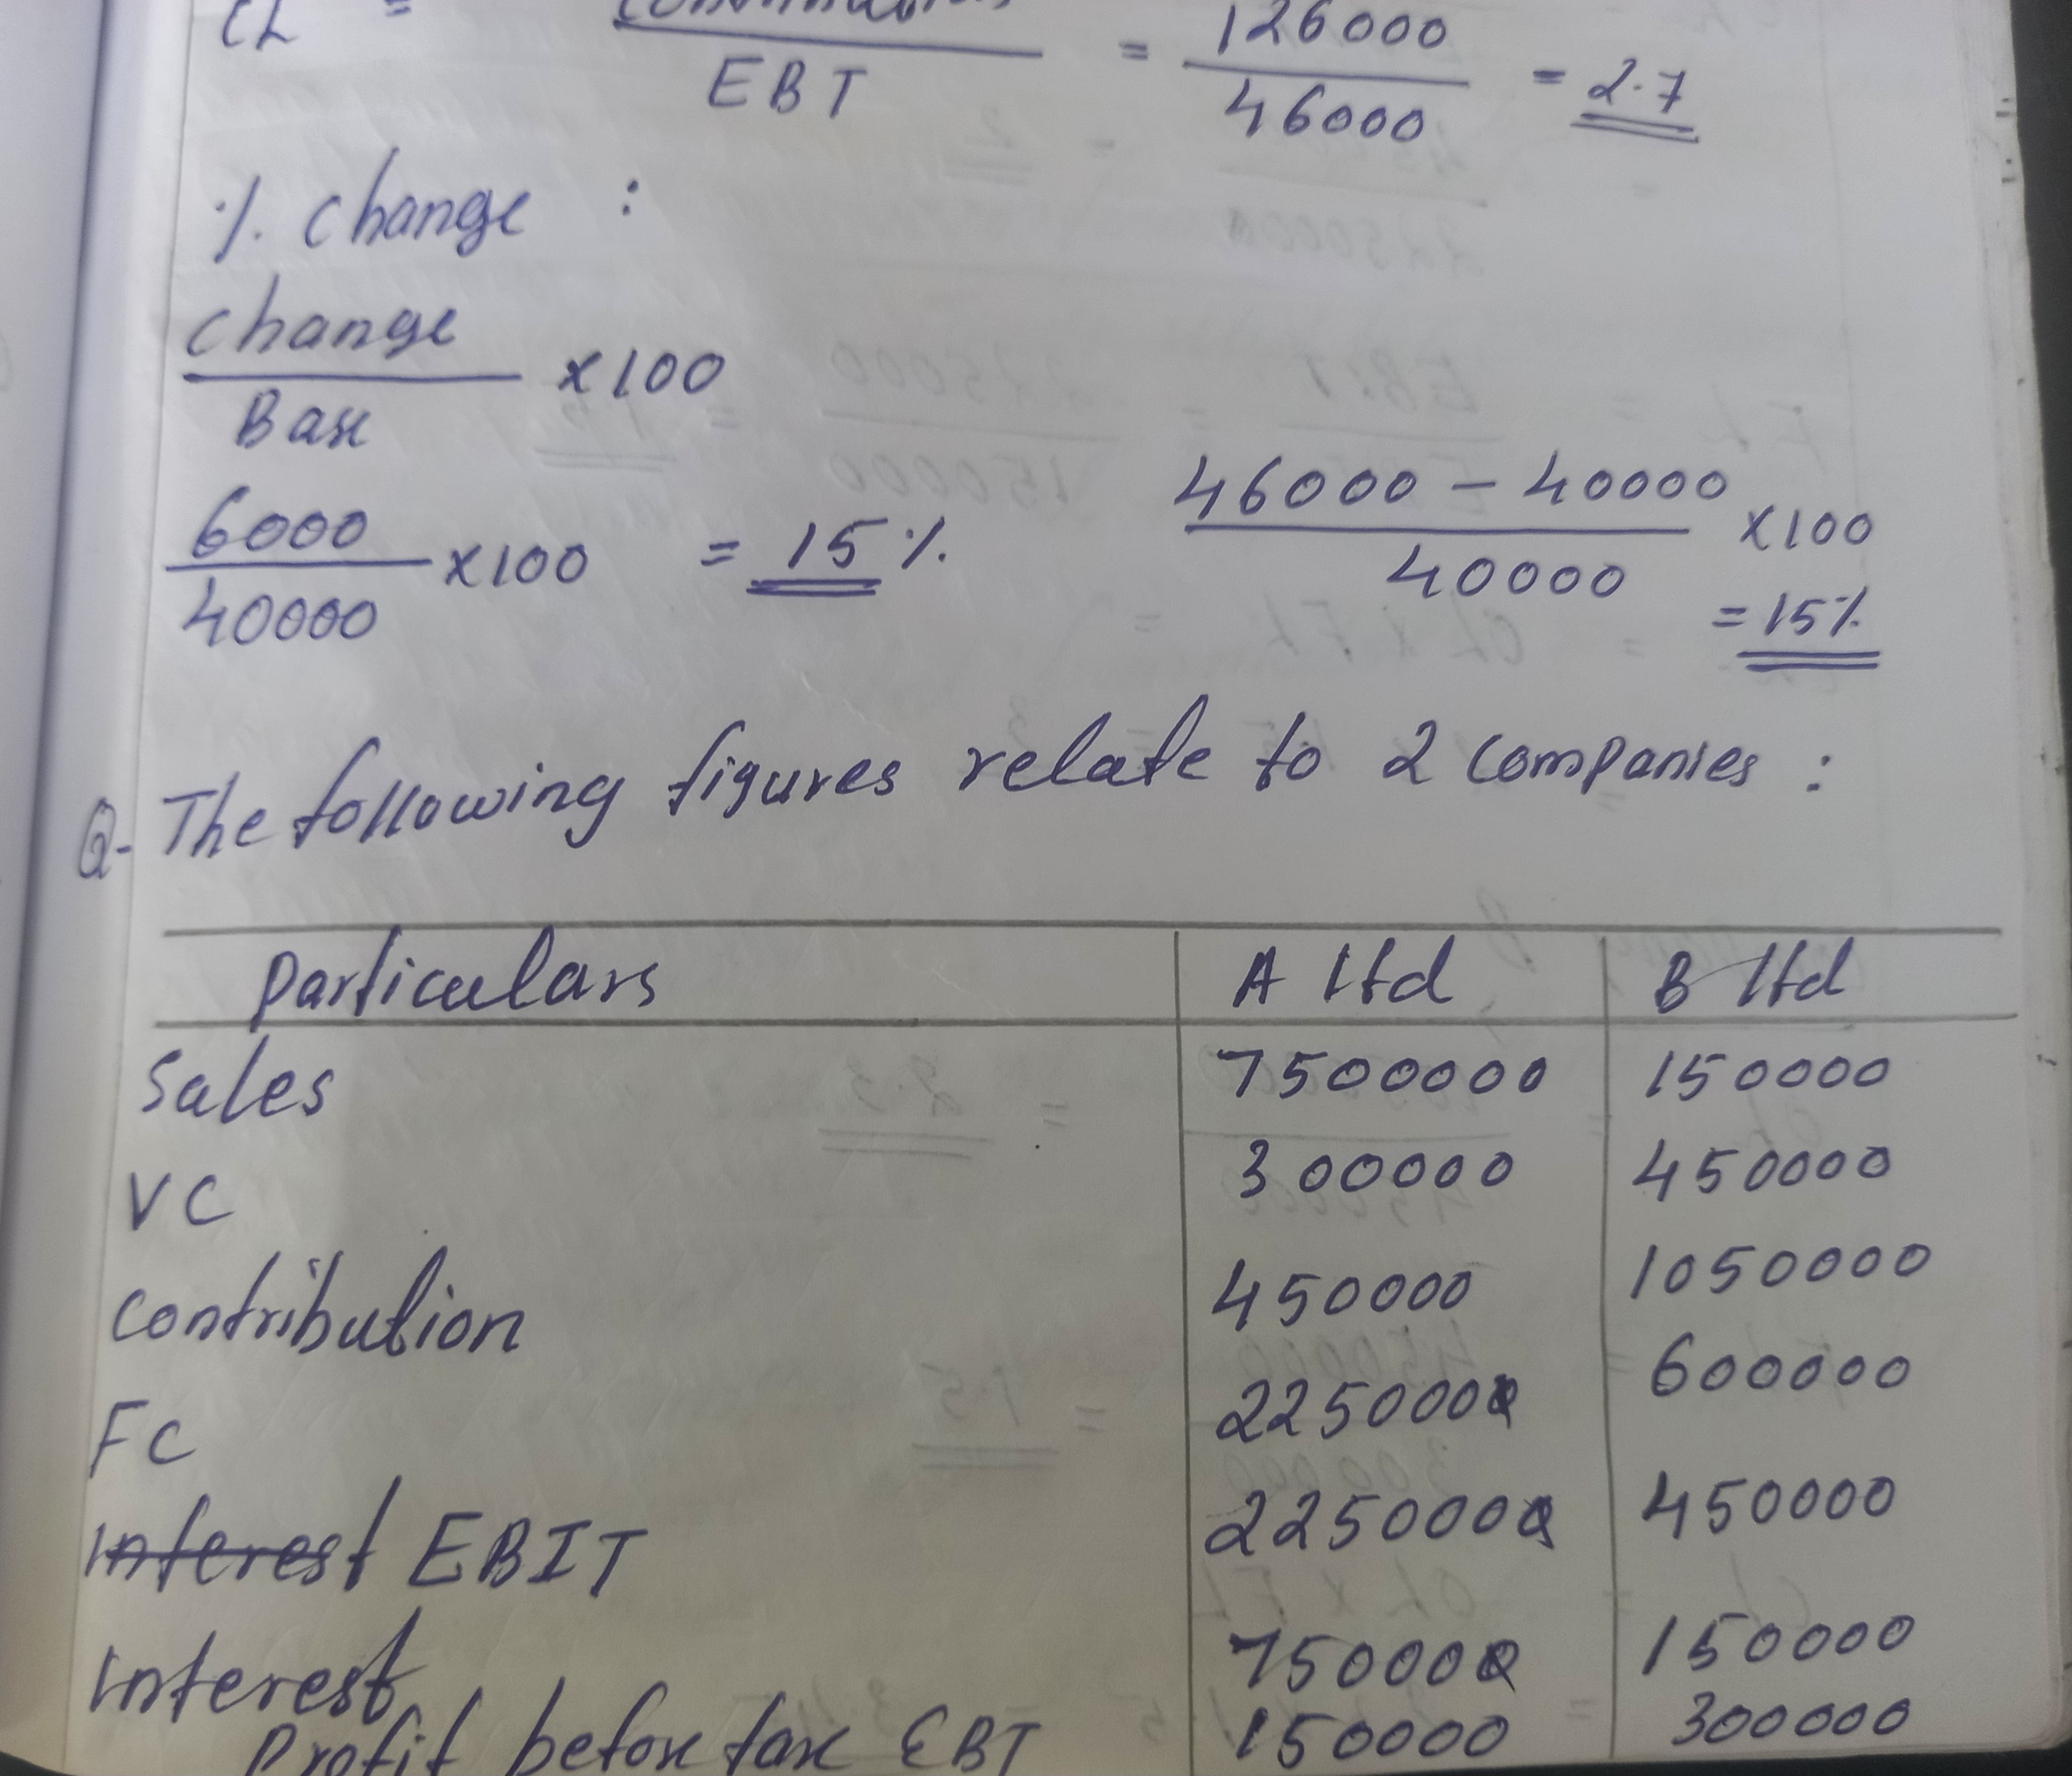 CL = Contribution / EBT = 126000 / 46000 = 2.7
% change :
Change / Base × 100
6000 / 40000 × 100 = 15%
46000 – 40000 / 40000 × 100
= 15%
Q- The following figures relate to 2 companies :
Particulars A ltd B ltd
Sales 7500000 150000
VC 300000 450000
Contribution 450000 1050000
FC 225000 600000
Interest EBIT 225000 450000
Interest 75000 150000
Profit before tax EBT 150000 300000